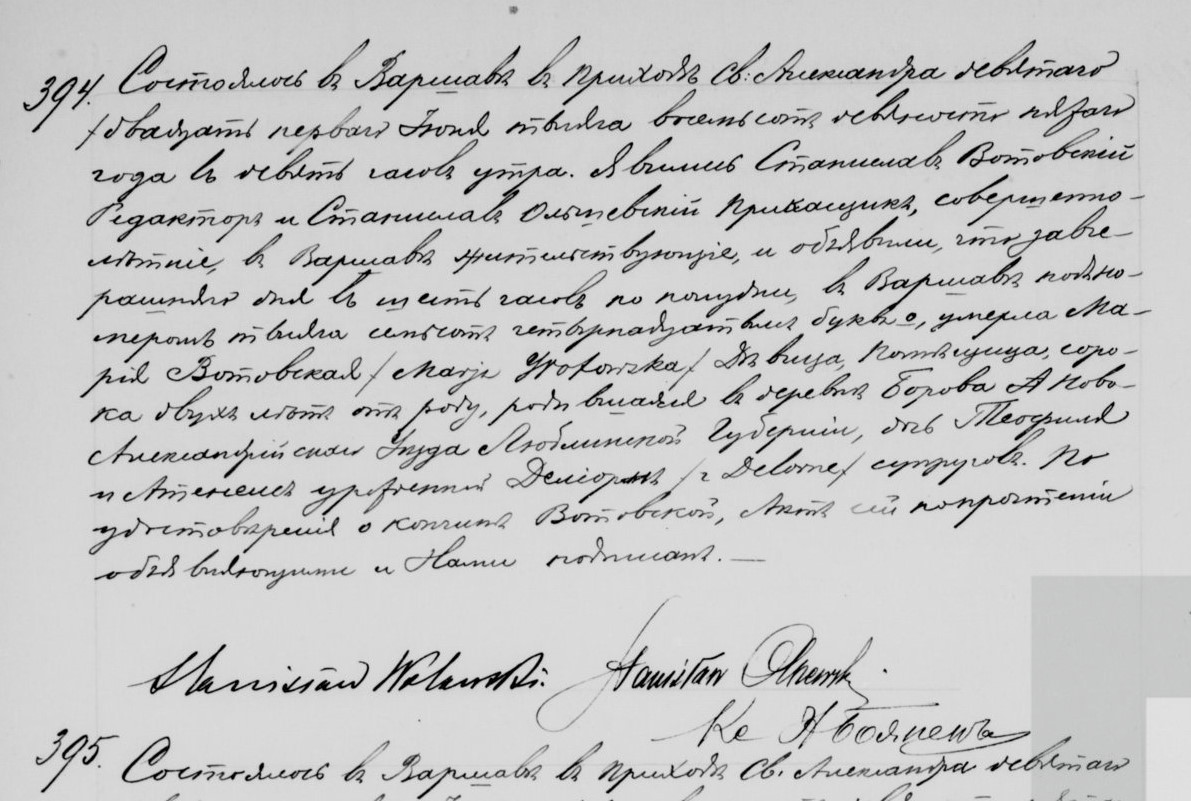 394. Состоялось въ Варшавѣ въ приходѣ Св: Александра девятаго
/двадцать перваго Іюня тысяча восемьсотъ девяносто пятаго
года въ девять часовъ утра. Явились Станиславъ Вотовскій
Редакторъ и Станиславъ Ольшевскій Прикащикъ, совершенно-
лѣтніе, въ Варшавѣ жительствующіе, и объявили, что завче-
рашняго дня въ шесть часовъ по полудни, въ Варшавѣ подъ но-
меромъ тысяча семьсотъ четырнадцатымъ буква о, умерла Ма-
рія Вотовская /Marja Wotowska/ Дѣвица, Помѣщица, соро-
ка двухъ лѣтъ отъ роду, родившаяся въ деревнѣ Борова А Ново-
Александрійскаго Уѣзда Люблинской Губерніи, дочь Теофиля
и урожденной /z Delorme/ супруговъ. По
удостовѣреніи о кончинѣ Вотовской, Актъ сей по прочтеніи
объявляющими и Нами подписанъ. —
Stanisław Wotowski. Stanisław
Кс
395. Состоялось въ Варшавѣ въ приходѣ Св. Александра девятаго